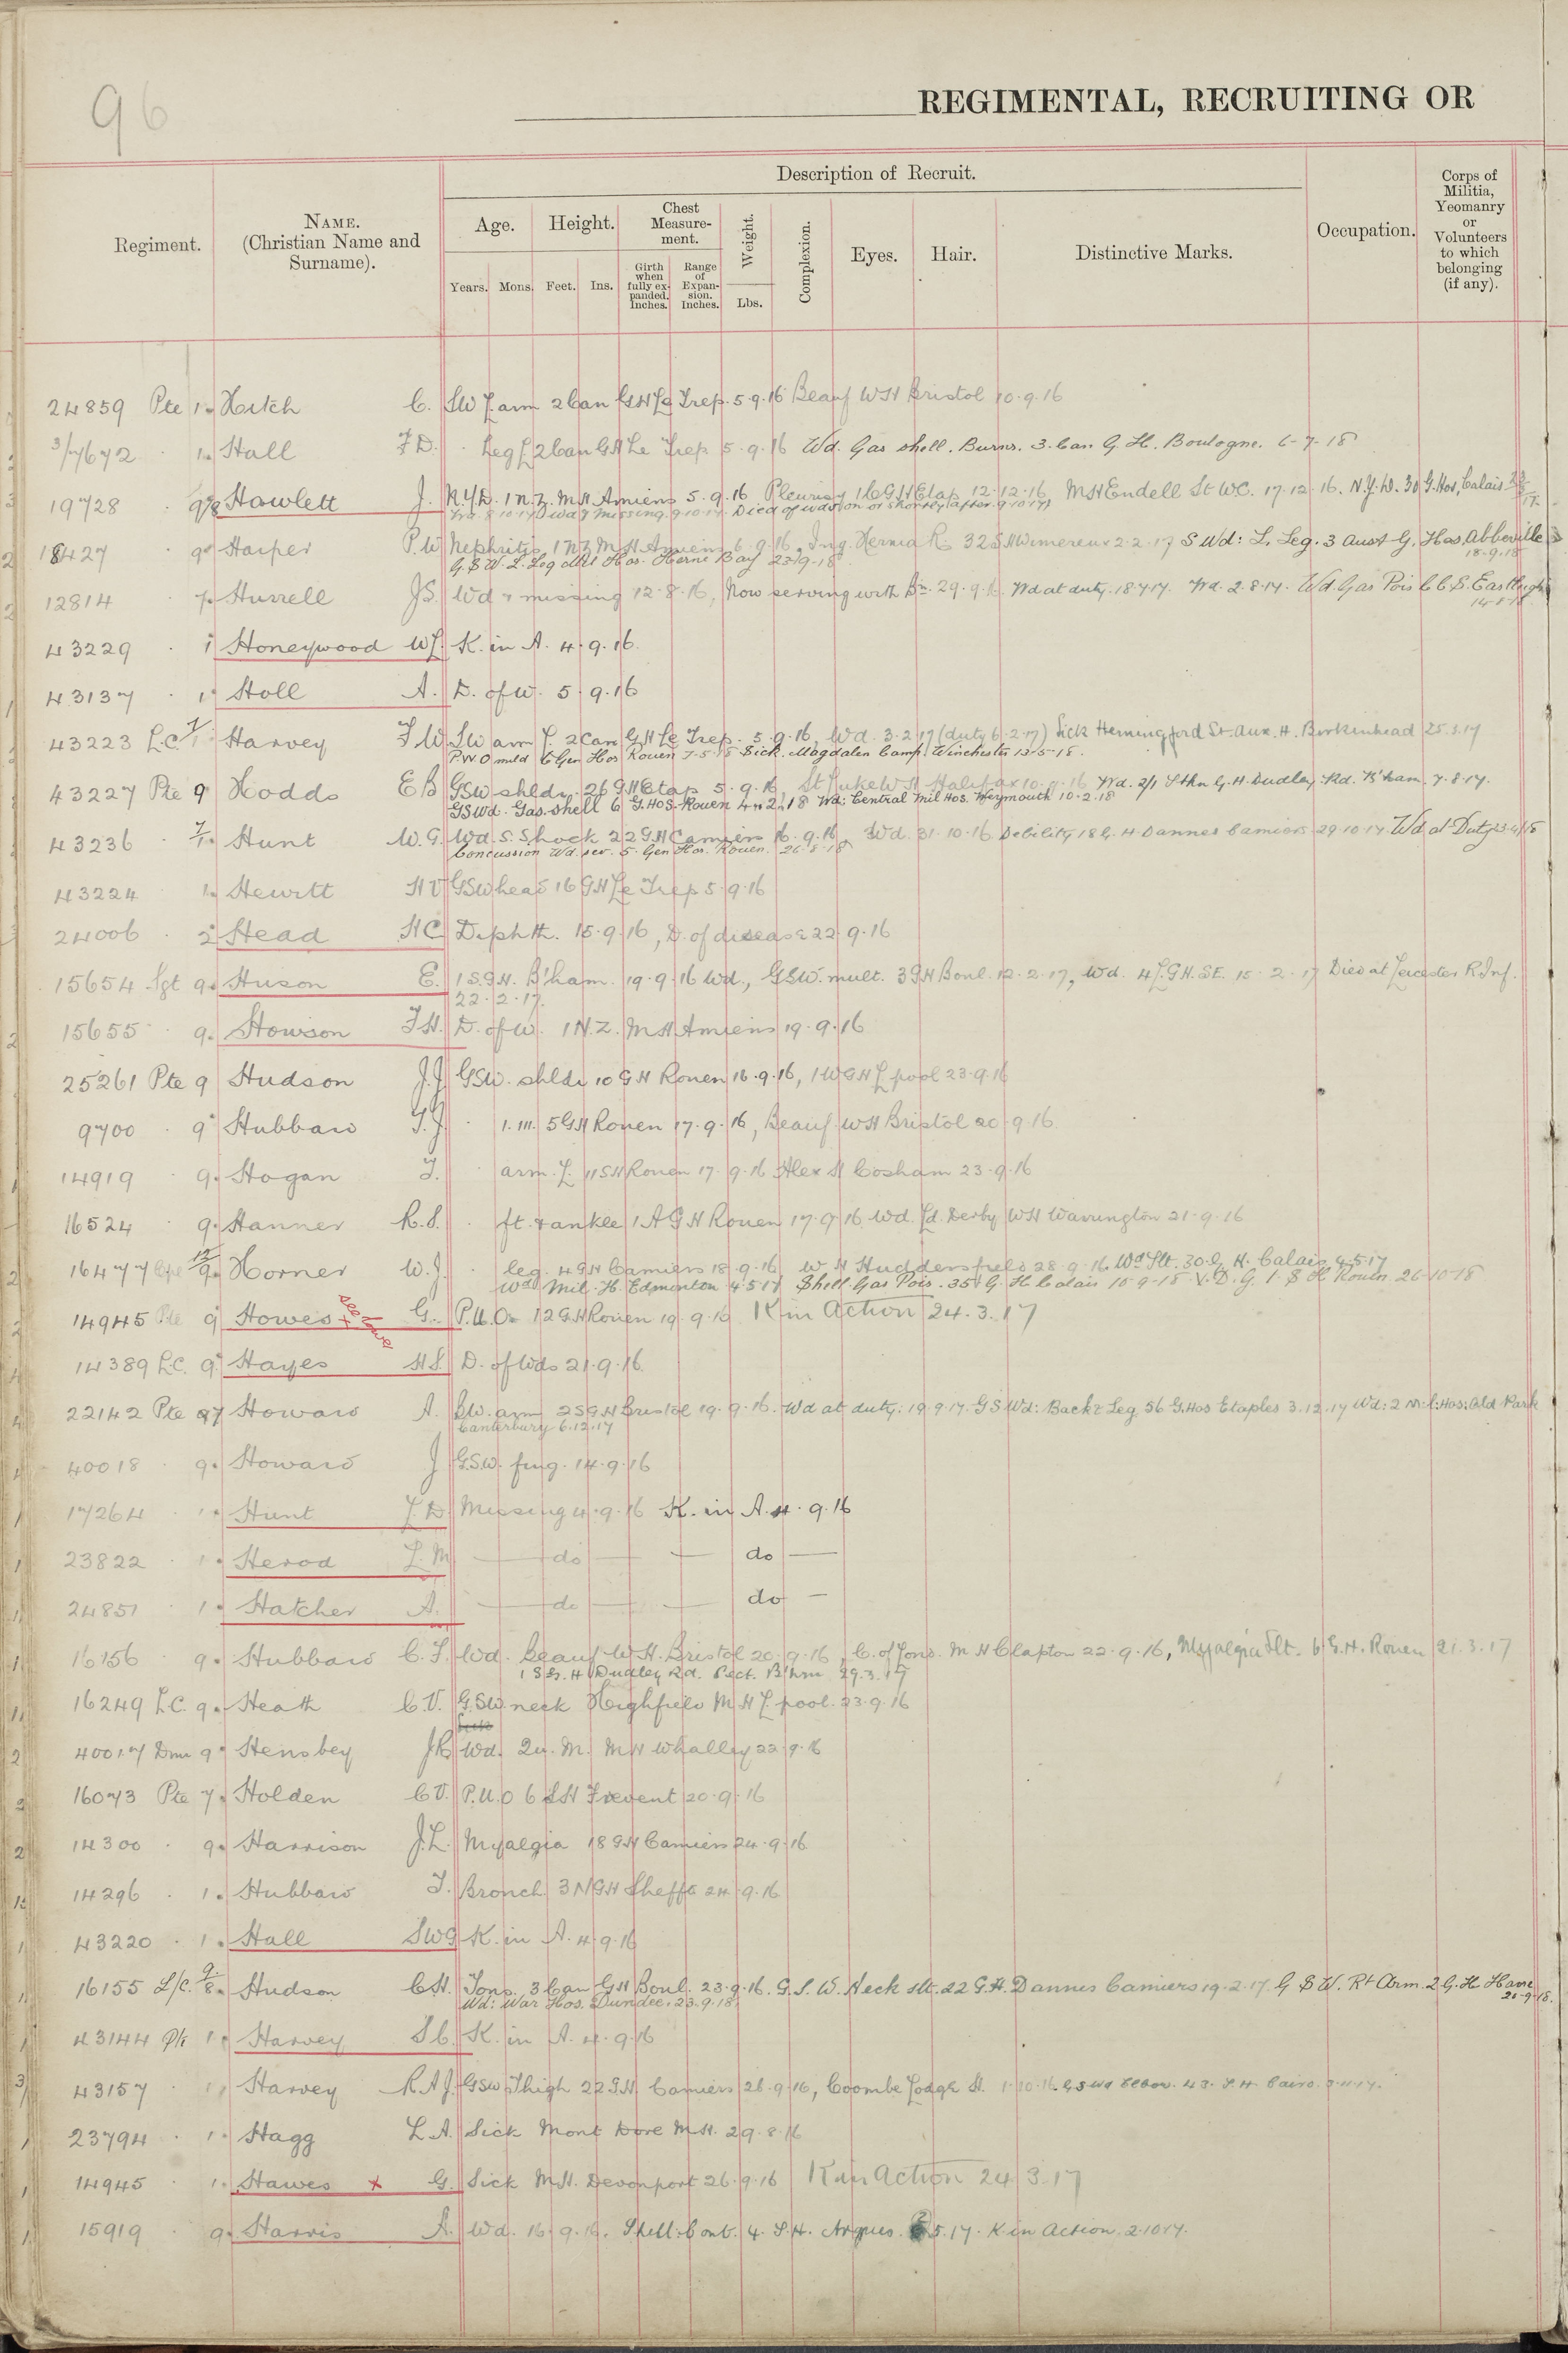 96
REGIMENTAL, RECRUITING OR
Description of Recruit.
Regiment.
NAME.
(Christian Name and
Surname).
Age.
Height.
Chest
Measure-
ment.
Weight.
Complexion.
Eyes.
Hair.
Distinctive Marks.
Occupation.
Corps of
Militia,
Yeomanry
or
Volunteers
to which
belonging
(if any).
Years.
Mons.
Feet.
Ins.
Girth
when
fully ex-
panded.
Inches.
Range
of
Expan-
sion.
Inches.
Lbs.
24859 Pte 1 Hitch C. SW L arm 2 Can GH Le Trep. 5.9.16 Beauf WH Bristol 10.9.16
3/7672 1 Hall F D. Leg L 2 Can GH Le Trep 5.9.16 Wd. Gas shell. Burns. 3. Can. G. H. Boulogne. 6-7-18
19728 9/8 Howlett J. N.Y.D. 1 N.Z. M.H Amiens 5.9.16 Pleurisy 16 GH Etap 12.12.16, MH Endell St W.C. 17.12.16. N.Y.D. 30 G. Hos, Calais
Wd & missing 9.10.17 Died of wds on or shortly after 9.10.17
18427 9 Harper P.W Nephritis 1 NZ MH Amiens 6.9.16, Ing. Hernia R. 32 SH Wimereux 2.2.17 S Wd: L. Leg. 3 Aust G. Hos. Abbeville
18-9-18
G.S.W. L. Leg Mil Hos. Herne Bay 23-9-18
12814 7 Hurrell J S. Wd & missing 12.8.16, Now serving with Bn 29.9.16 Wd at duty. 18.7.17. Wd. 2.8.17. Wd. Gas Pois C.C.S. Eastleigh
43229 1 Honeywood W J. K. in A. 4.9.16
43137 1 Holl A. D. of W. 5.9.16
43223 L.C. 7/1 Harvey F W SW arm L. 2 Can GH Le Trep. 5.9.16, Wd. 3.2.17 (duty 6.2.17) Sick Hemingford St. Aux. H. Birkenhead 25.3.17
P.U.O mild 6 Gen Hos Rouen 7-5-18 Sick. Magdalen Camp, Winchester 13-5-18.
43227 Pte 9 Hodds E B GSW shldr. 26 GH Etap 5.9.16, St Luke WH Halifax 10.9.16 Wd. 2/1 Sthn G.H. Dudley Rd. B'ham. 7.8.17.
GSWd. Gas. shell 6 G. Hos. Rouen 4.2.18 Wd: Central Mil Hos. Weymouth 10.2.18
43236 7/1 Hunt W. G. Wd. S. Shock 22 GH Camiers 16.9.16, Wd. 31.10.16 Debility 18 G. H Dannes Camiers 29.10.17 Wd at Duty 23-4-18
Concussion Wd. sev. 5. Gen Hos. Rouen. 26-8-18
43224 1 Hewitt H V GSW head 16 GH Le Trep 5.9.16
24006 2 Head H C Diphth. 15.9.16, D. of disease 22.9.16
15654 Sgt 9 Huson E. 1 S.G.H. B'ham. 19.9.16 Wd., GSW. mult. 3 GH Boul. 12.2.17, Wd. 4 L.G.H. S.E. 15.2.17 Died at Leicester R. Inf.
22.2.17.
15655 9 Howson F H. D. of W. 1 N.Z. M H Amiens 19.9.16
25261 Pte 9 Hudson J.J. GSW. shldr 10 GH Rouen 16.9.16, 1 W G H L'pool 23.9.16
9700 9 Hubbard T.J. 5 GH Rouen 17.9.16, Beauf. WH Bristol 20.9.16.
14919 9 Hogan T. arm. L. 11 SH Rouen 17.9.16 Alex H Cosham 23.9.16
16524 9 Hanner R. S. ft. & ankle 1 A G H Rouen 17.9.16 Wd. Ld. Derby WH Warrington 21.9.16
16477 Cpl 12/9 Horner W. J. leg. 4 GH Camiers 18.9.16, W H Huddersfield 28.9.16 Wd Slt. 30 G. H. Calais 4.5.17
Wd Mil. H. Edmonton 4.5.17 Shell. Gas Pois. 35 G. H. Calais 15-9-18 V.D.G. 1. S H Rouen 26-10-18
14945 Pte 9 Howes x see Hawes G. P.U.O. 12 GH Rouen 19.9.16 K in Action 24.3.17
14389 L.C. 9 Hayes H S. D. of Wds 21.9.16
22142 Pte 97 Howard A. SW. arm 2 SGH Bristol 19.9.16. Wd at duty: 19.9.17. G S Wd: Back & Leg 56 G. Hos Etaples 3.12.17 Wd: 2 Mil: Hos: Old Park
Canterbury 6.12.17
40018 9 Howard J G.S.W. fing. 14.9.16
17264 1 Hunt F. D. Missing 4.9.16 K. in A. 4.9.16
23822 1 Herod L. M — do — — do —
24851 1 Hatcher A. — do — — do —
16156 9 Hubbard C. F. Wd. Beauf W.H. Bristol 20.9.16, C. of Tons. M H Clapton 22.9.16, Myalgia Slt. 6 G.H. Rouen 21.3.17
1 S G. H Dudley Rd. Sect. B'hm 29.3.17
16249 L.C. 9 Heath C. V. G.S.W. neck Highfield M H L'pool. 23.9.16
40017 Dmr 9 Hensbey J B Wd. Qu. M. MH Whalley 22.9.16
16073 Pte 7 Holden C V. P.U.O 6 SH Frevent 20.9.16
14300 9 Harrison J. L. Myalgia 18 GH Camiers 24.9.16
14296 1 Hubbard T. Bronch 3 N G H Sheff'd 24.9.16
43220 1 Hall S W G K. in A. 4.9.16
16155 L/c. 9/8 Hudson C H. Tons. 3 Can GH Boul. 23.9.16. G. S. W. Neck slt. 22 G.H. Dannes Camiers 19.2.17. G S W. Rt Arm. 2 G. H. Havre
20-9-18.
Wd: War Hos. Dundee. 23.9.18
43144 Pte 1 Harvey S C. K. in A. 4.9.16
43157 1 Harvey R A J. GSW Thigh 22 GH Camiers 26.9.16, Coombe Lodge H. 1.10.16 G S Wd Elbow. 43. S. H.
23794 1 Hagg L A. Sick Mont Dore M.H. 29.8.16
14945 1 Hawes x G. Sick M.H. Devonport 26.9.16 K in Action 24.3.17
15919 9 Harris A. Wd. 16.9.16. Shell. Cont. 4. S. H. Arques 5.17. K in Action. 2.10.17.